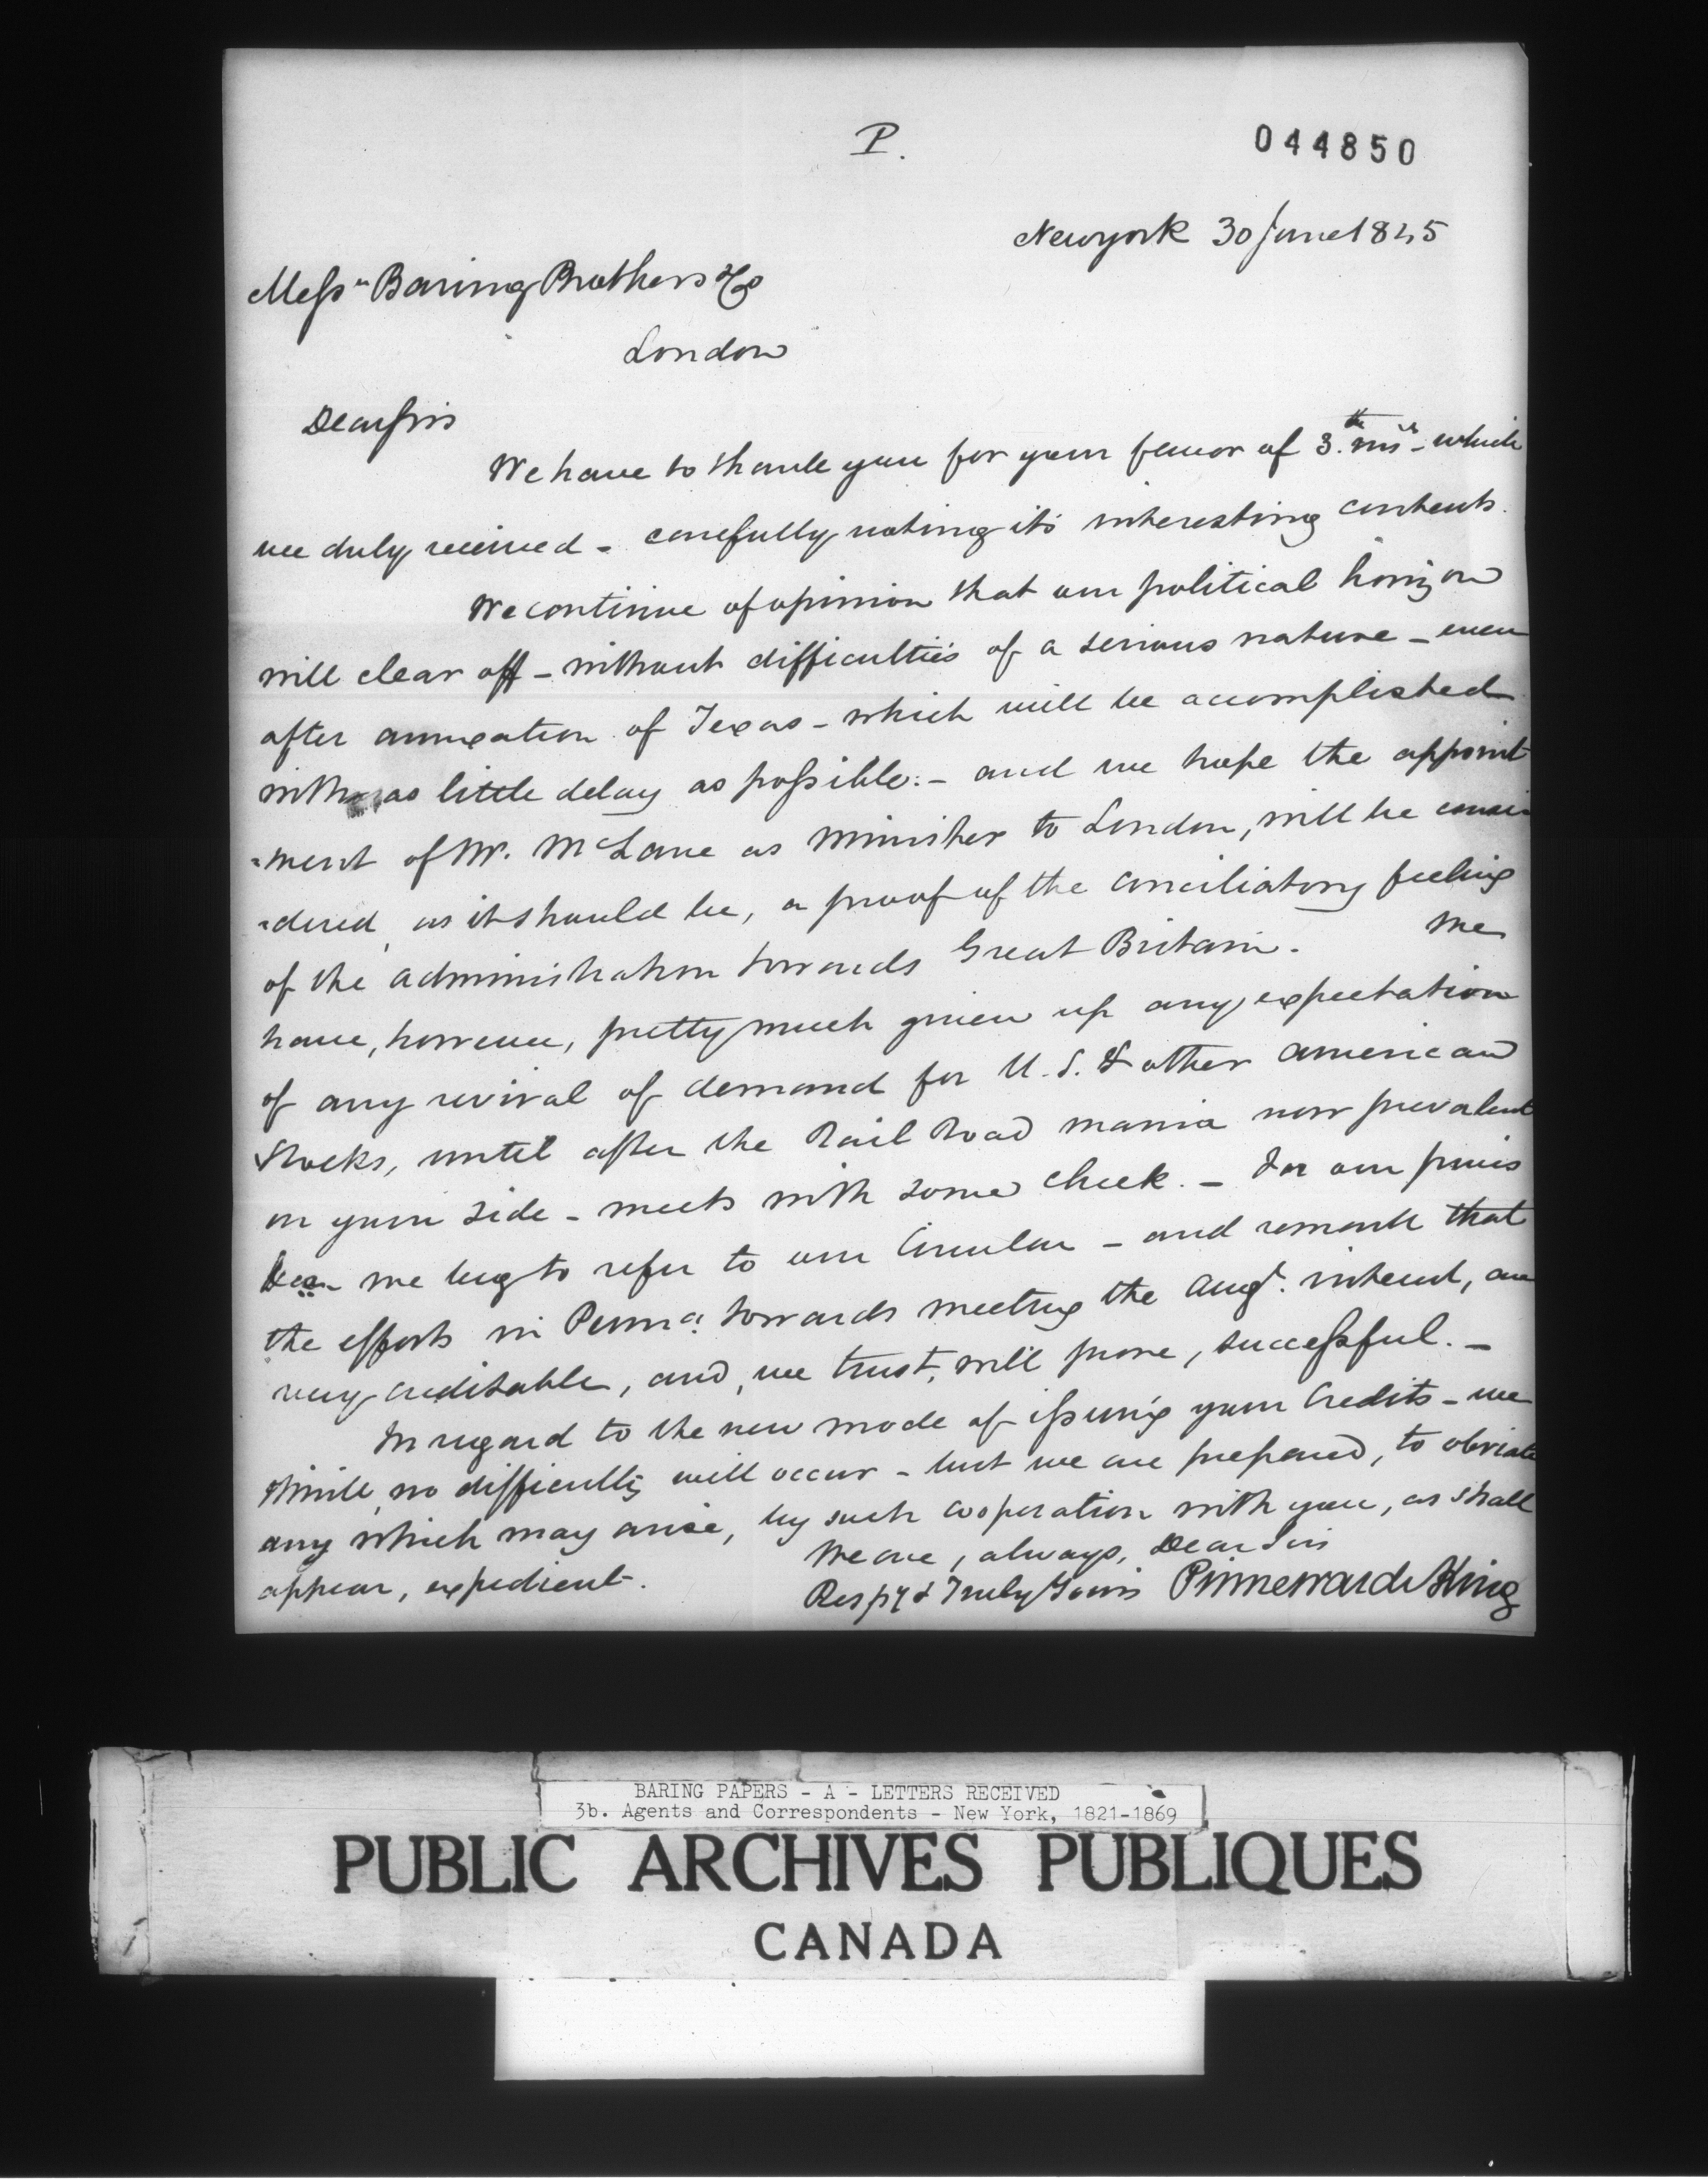 P.
044850
Newyork 30 June 1845
Messrs Baring Brothers & Co
London
Dear Sirs
We have to thank you for your favor of 3.th ins - which
we duly received - carefully noting its interesting contents.
We continue of opinion that our political horizon
will clear off - without difficulties of a serious nature - even
after annexation of Texas - which will be accomplished
with as little delay as possible: - and we hope the appoint
-ment of Mr. McLane as Minister to London, will be consi-
-dered, as it should be, a proof of the conciliatory feeling
of the administration towards Great Britain. We
have, however, pretty much given up any expectation
of any revival of demand for U.S. & other American
Stocks, until after the Rail Road mania now prevalent
on your side - meets with some check. - For our prices
we beg to refer to our Circular - and remark that
the efforts in Penna. towards meeting the Augt. interest, are
very creditable, and, we trust, will prove, successful. -
In regard to the new mode of issuing your Credits - we
think, no difficulty will occur - but we are prepared, to obviate
any which may arise, by such cooperation with you, as shall
appear, expedient.
We are, always, Dear Sirs
Respy & Truly Yours Prime Ward & King
BARING PAPERS - A - LETTERS RECEIVED
3b. Agents and Correspondents - New York, 1821-1869
PUBLIC ARCHIVES PUBLIQUES
CANADA